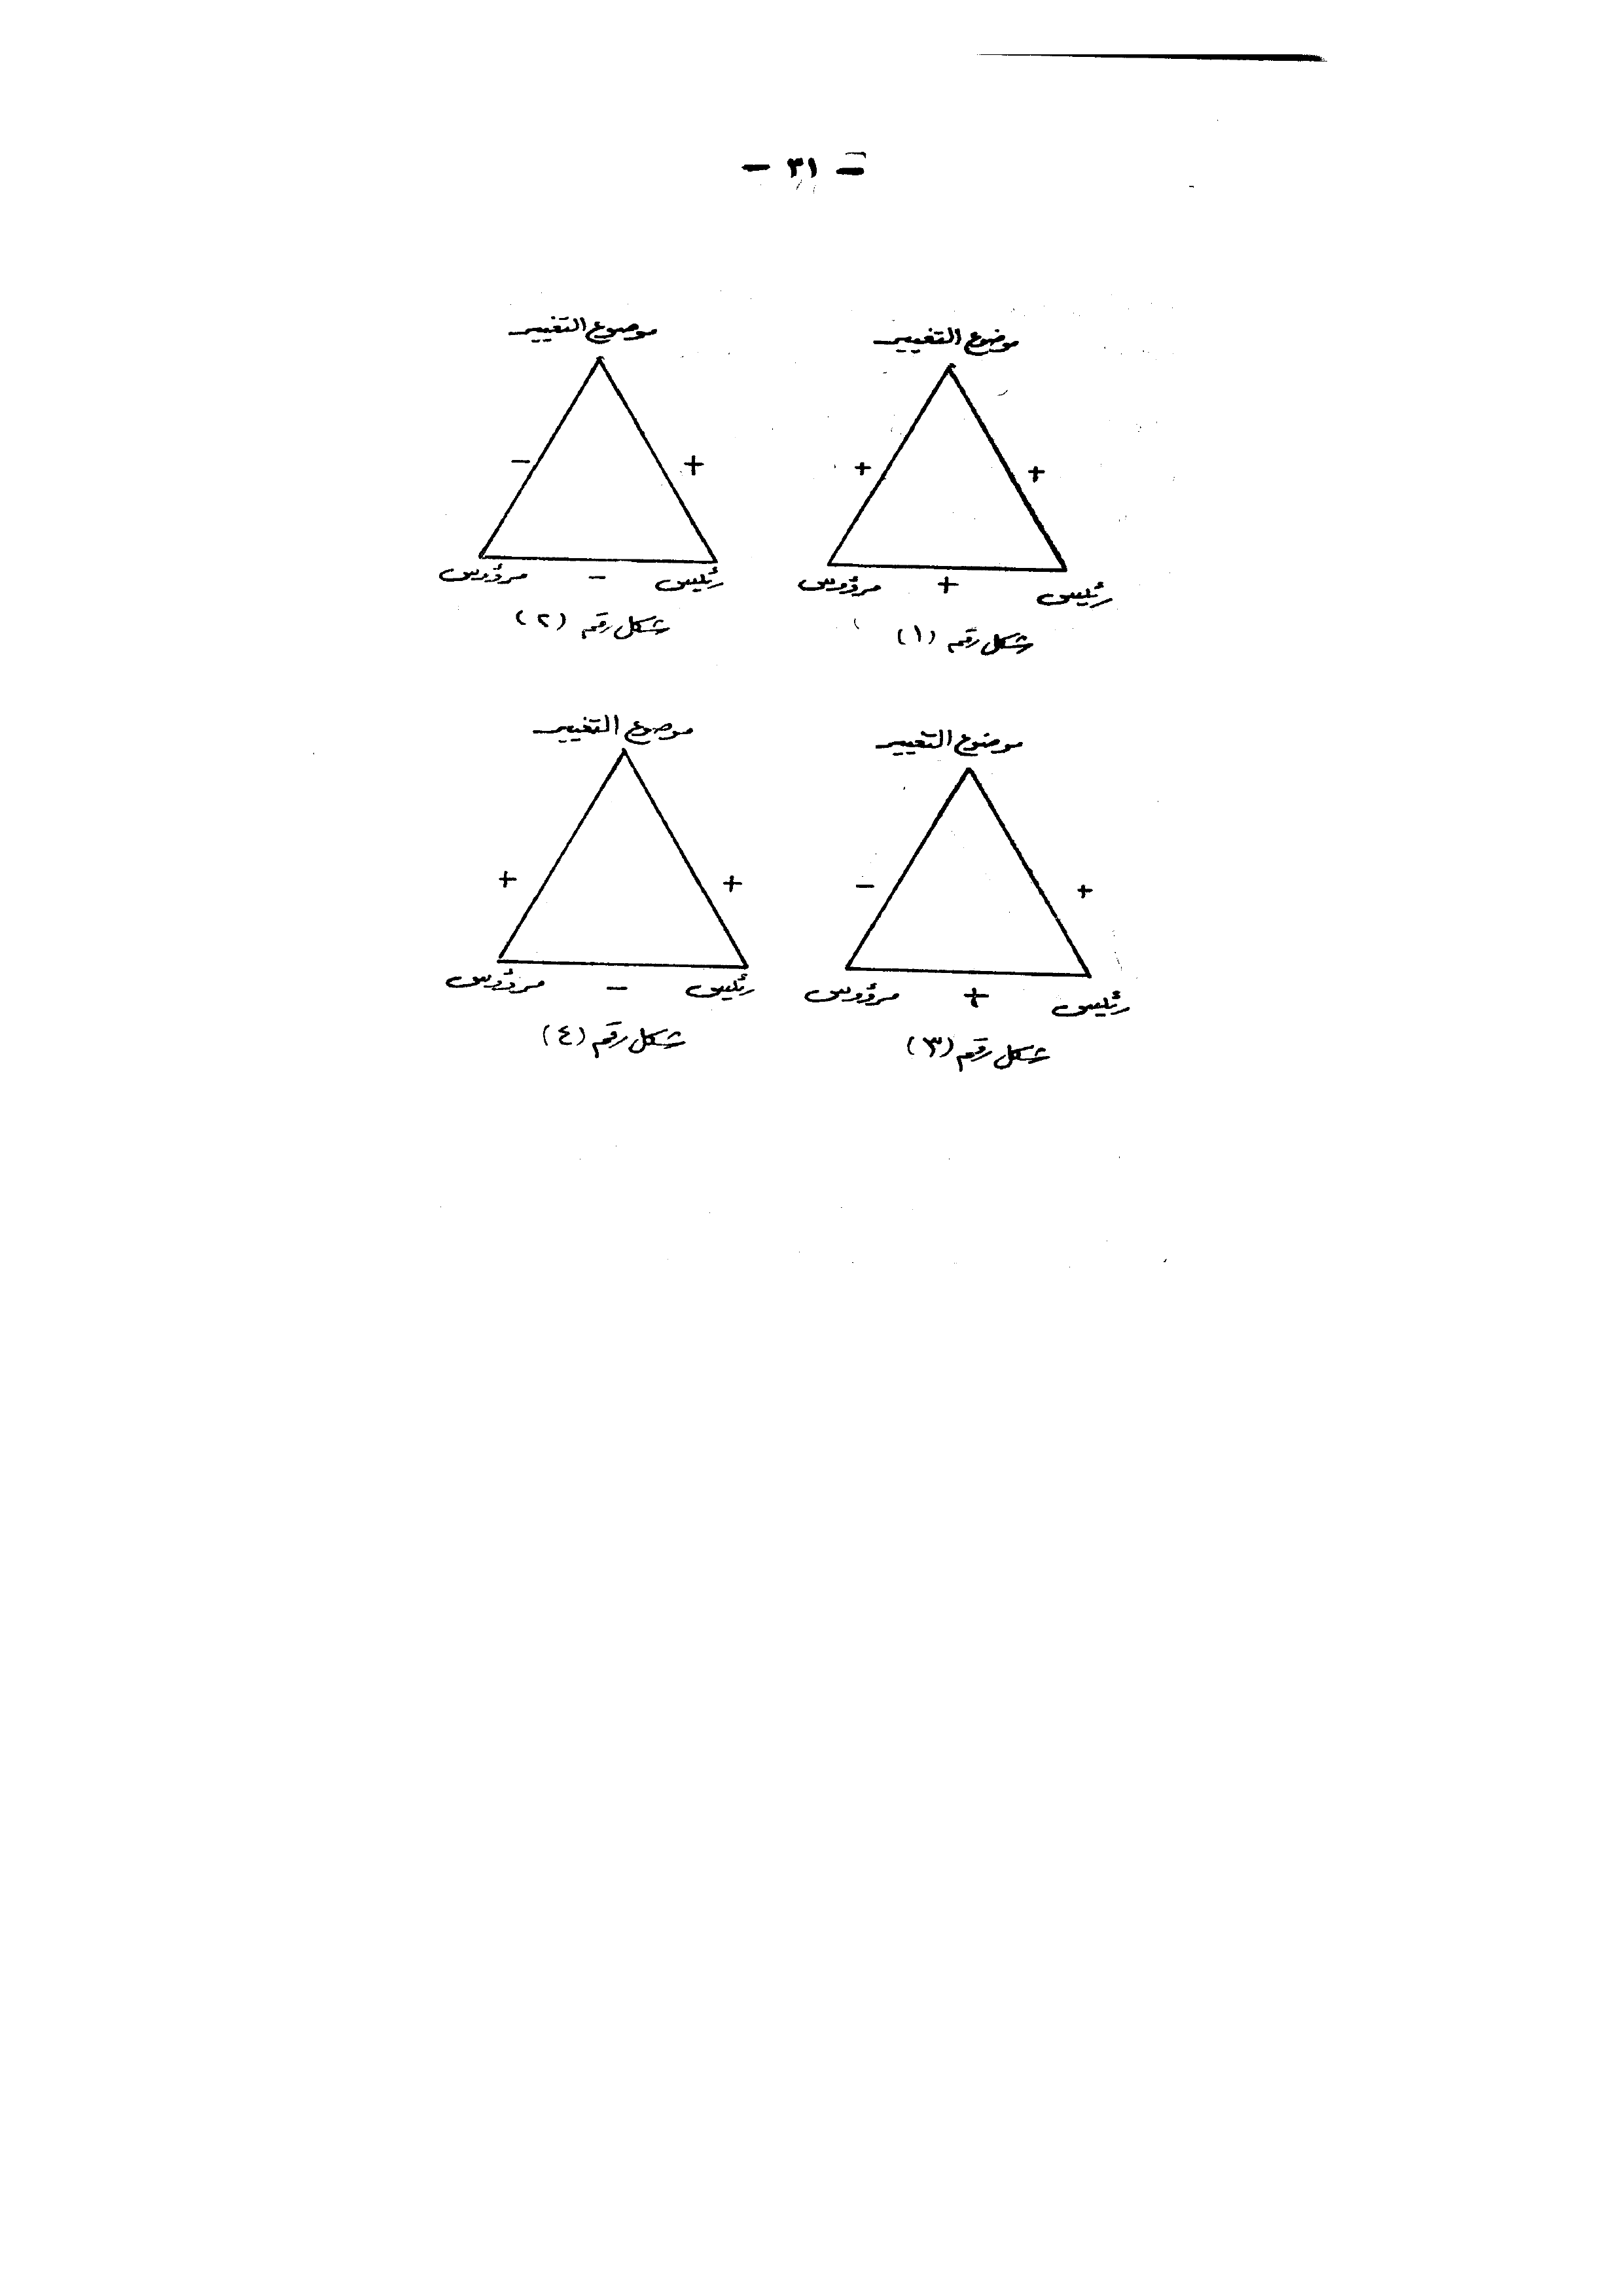 - ٣١ -
موضوع التغيير
+ +
رئيس + مرؤوس
شكل رقم (١)
موضوع التغيير
- +
رئيس - مرؤوس
شكل رقم (٢)
موضوع التغيير
- +
رئيس + مرؤوس
شكل رقم (٣)
موضوع التغيير
+ +
رئيس - مرؤوس
شكل رقم (٤)